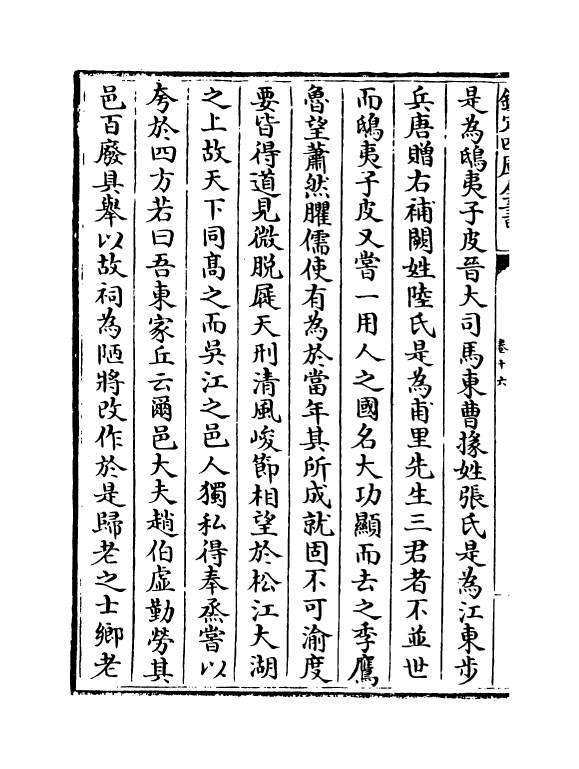 欽定四庫全書
卷十六
是為鴟夷子皮晉大司馬東曹掾姓張氏是為江東步
兵唐贈右補闕姓陸氏是為甫里先生三君者不並世
而鴟夷子皮又嘗一用人之國名大功顯而去之季鷹
魯望蕭然臞儒使有為於當年其所成就固不可渝度
要皆得道見微脱屣天刑清風峻節相望於松江大湖
之上故天下同髙之而吳江之邑人獨私得奉烝嘗以
夸於四方若曰吾東家丘云爾邑大夫趙伯虛勤勞其
邑百廢具舉以故祠為陋將改作於是歸老之士鄉老